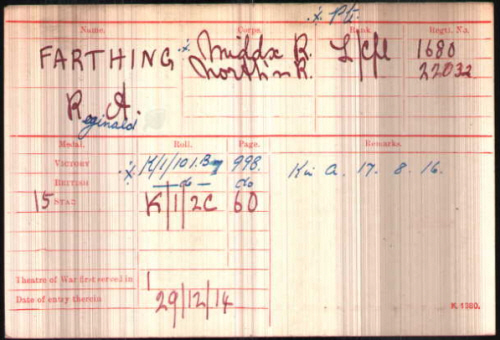 x Pte.
Name. Corps. Rank. Regtl. No.
FARTHING x Middx R. L/Cpl 1680
North'n R. 22032
R. A.
eginald
Medal. Roll. Page. Remarks.
VICTORY x K/1/101.B 998. K in A. 17. 8. 16.
BRITISH — do — do
15 STAR K/1/2C 60
Theatre of War first served in 1
Date of entry therein 29/12/14
K. 1380.